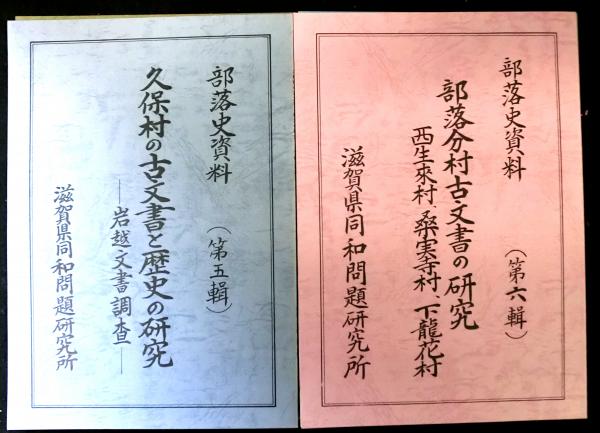 部落史資料 (第六輯)
部落分村古文書の研究
西生來村、桑実寺村、下龍花村
滋賀県同和問題研究所
部落史資料 (第五輯)
久保村の古文書と歴史の研究
―岩越文書調査―
滋賀県同和問題研究所